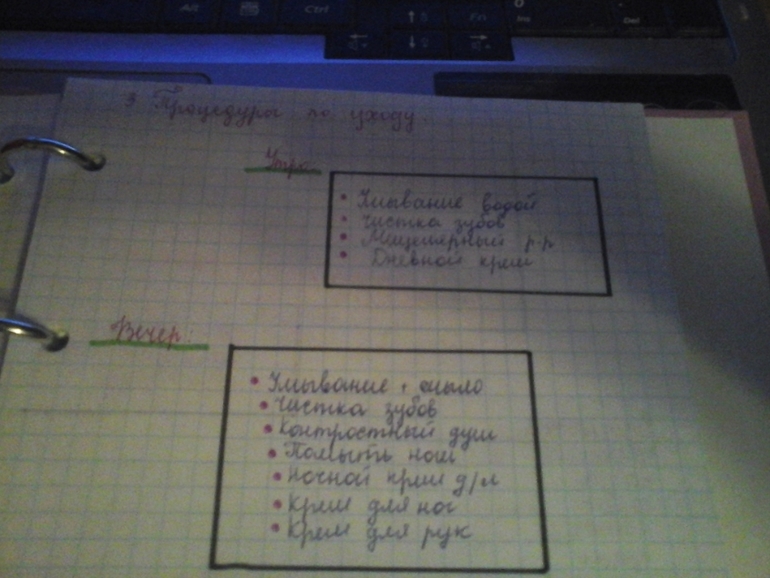 Alt
Ctrl
Fn
Ins
Del
Процедура по уходу.
Утро:
• Умывание водой
• Чистка зубов
• Мицелярный р-р
• Дневной крем
Вечер:
• Умывание + мыло
• Чистка зубов
• Контростный душ
• Помыть ноги
• Ночной крем д/л
• Крем для ног
• Крем для рук